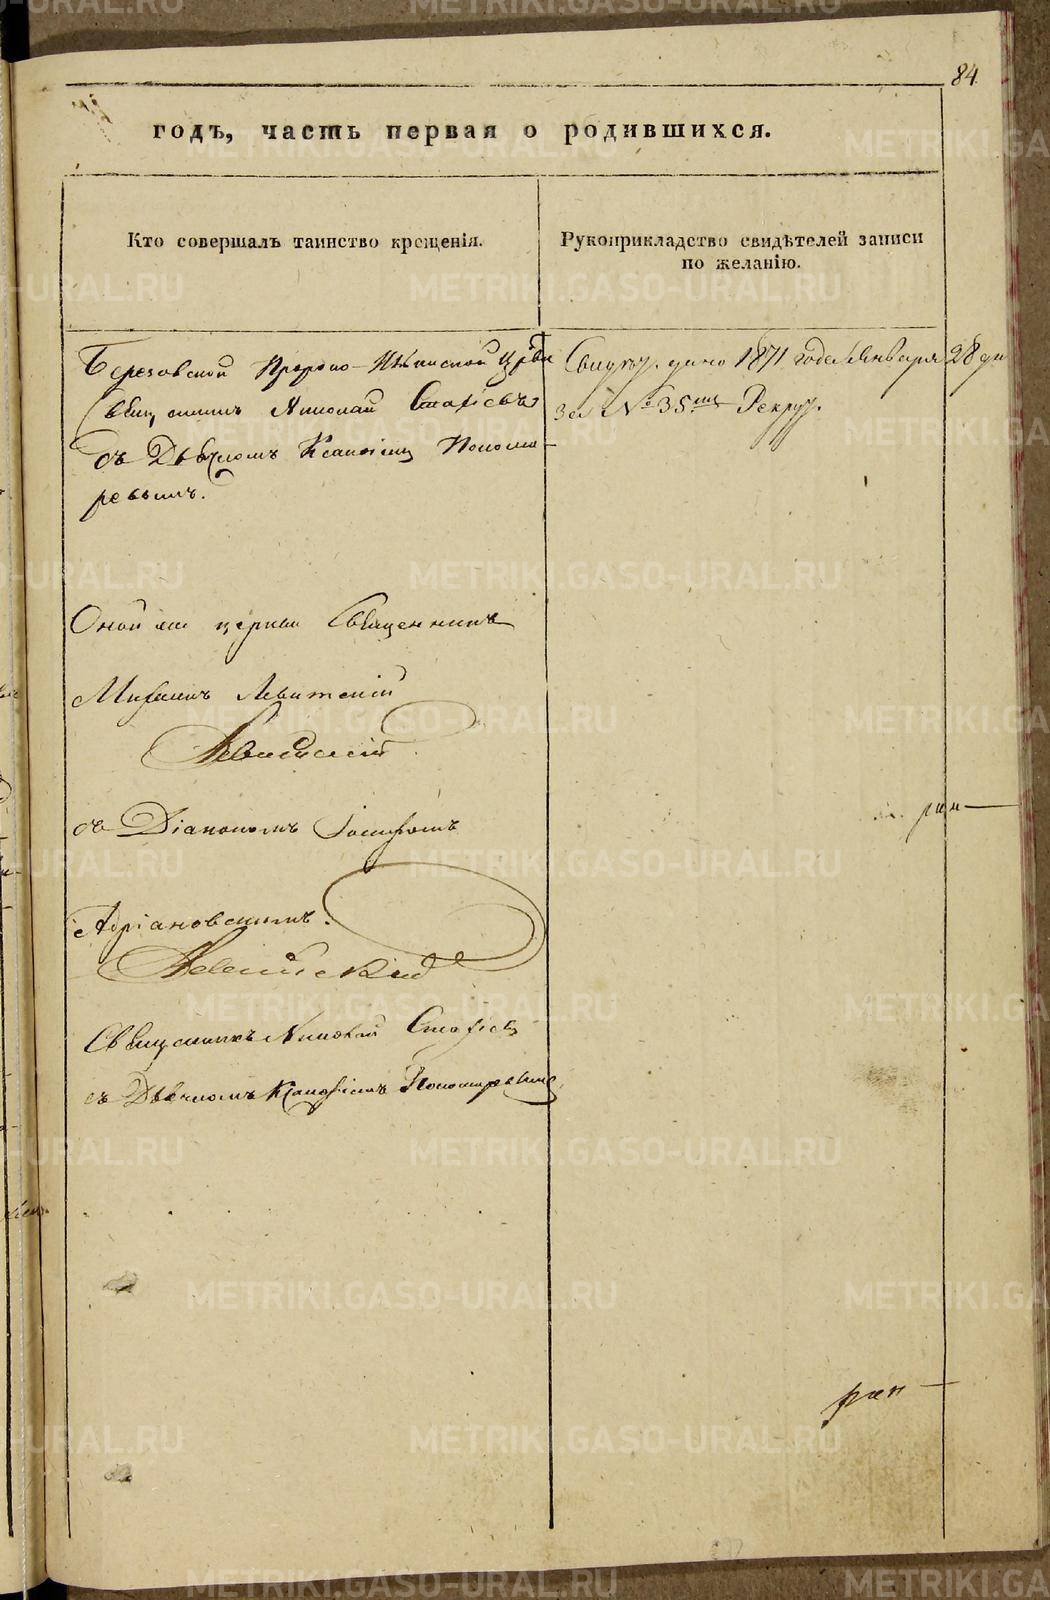 84
годъ, часть первая о родившихся.
Кто совершалъ таинство крещенія.
Рукоприкладство свидѣтелей записи
по желанію.
Березовской Пророко-Ильинской Црkви
Священникъ Николай Стефа
съ Дьячкомъ Ксанфіем Понома-
ревымъ.
Свидѣт. дано 1871 года Января 28 дн
за № 35мъ Рекрут.
Оной же церкви Священникъ
Михаилъ Левитскій
Левитскій
съ Діакономъ Іосифомъ
Адріановскимъ.
Левитскій
Священникъ Николай
съ Дьячкомъ Ксанфіемъ Пономаревымъ
METRIKI.GASO-URAL.RU